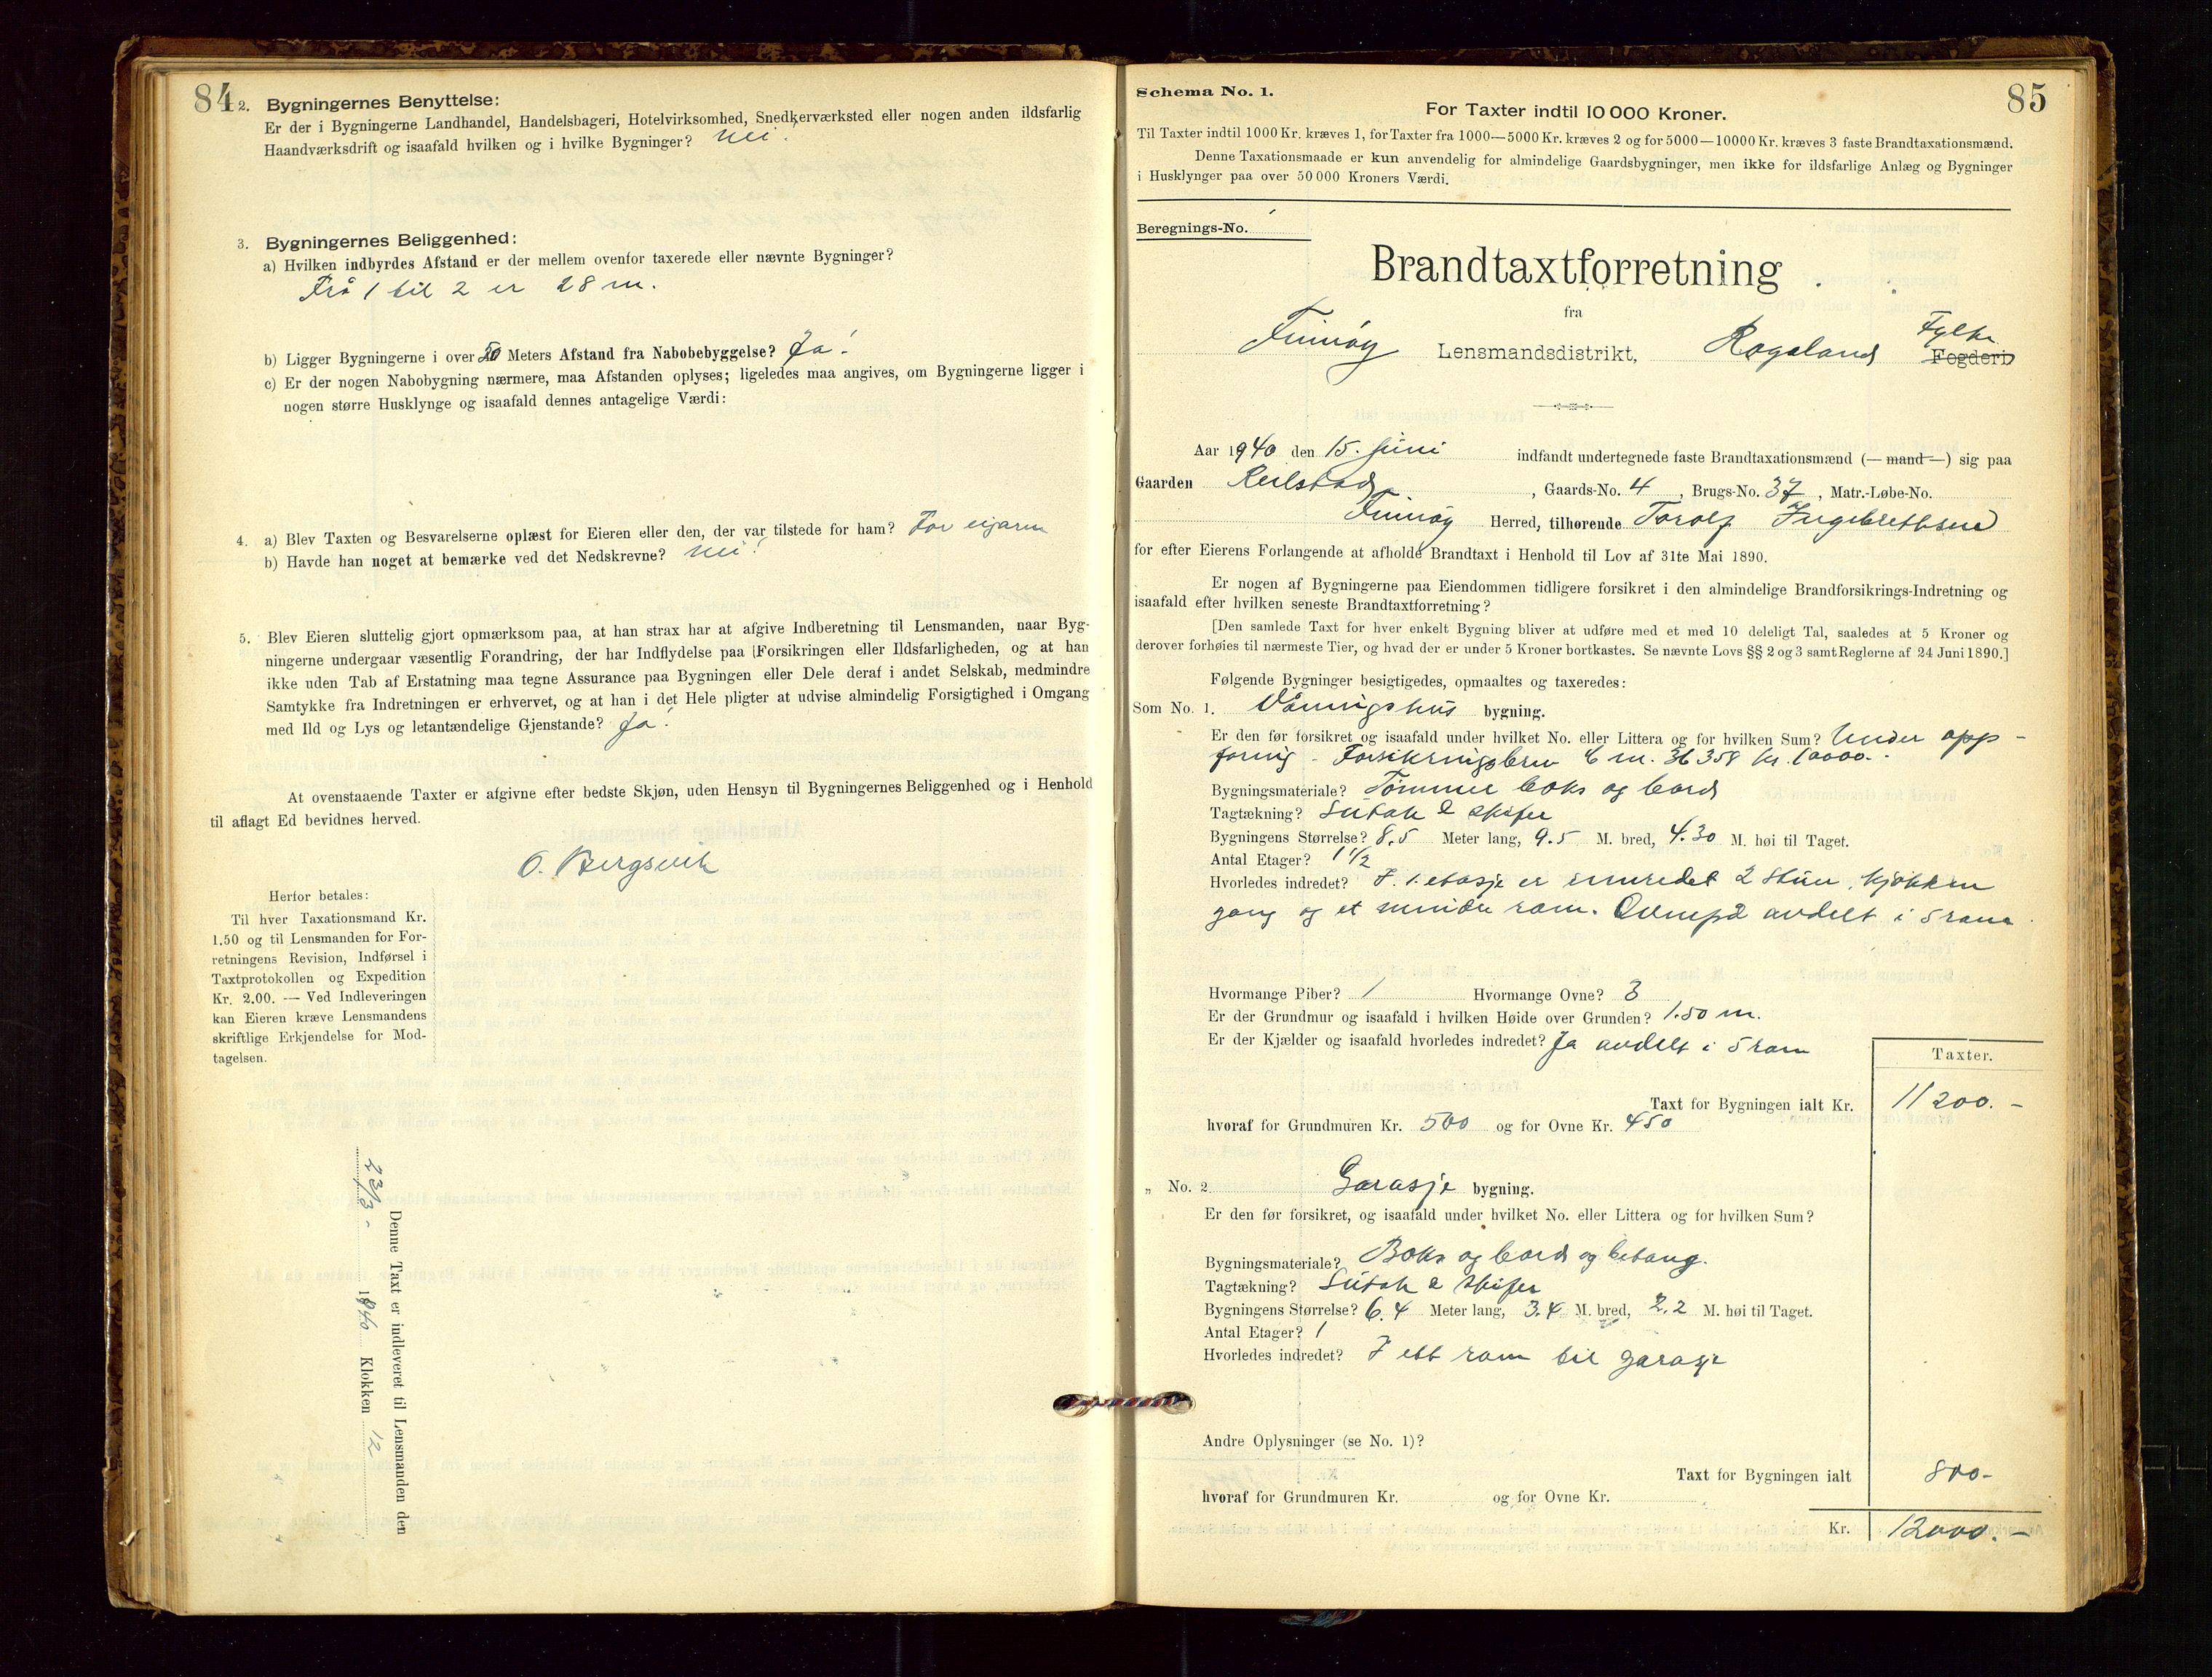 84
2. Bygningernes Benyttelse:
Er der i Bygningerne Landhandel, Handelsbageri, Hotelvirksomhed, Snedkerværksted eller nogen anden ildsfarlig
Haandværksdrift og isaafald hvilken og i hvilke Bygninger? Nei.
3. Bygningernes Beliggenhed:
a) Hvilken indbyrdes Afstand er der mellem ovenfor taxerede eller nævnte Bygninger?
Frå 1 til 2 er 28 m.
b) Ligger Bygningerne i over 50 Meters Afstand fra Nabobebyggelse? Ja.
c) Er der nogen Nabobygning nærmere, maa Afstanden oplyses; ligeledes maa angives, om Bygningerne ligger i
nogen større Husklynge og isaafald dennes antagelige Værdi:
4. a) Blev Taxten og Besvarelserne oplæst for Eieren eller den, der var tilstede for ham? For eigaren
b) Havde han noget at bemærke ved det Nedskrevne? Nei!
5. Blev Eieren sluttelig gjort opmærksom paa, at han strax har at afgive Indberetning til Lensmanden, naar Byg-
ningerne undergaar væsentlig Forandring, der har Indflydelse paa Forsikringen eller Ildsfarligheden, og at han
ikke uden Tab af Erstatning maa tegne Assurance paa Bygningen eller Dele deraf i andet Selskab, medmindre
Samtykke fra Indretningen er erhvervet, og at han i det Hele pligter at udvise almindelig Forsigtighed i Omgang
med Ild og Lys og letantændelige Gjenstande? Ja.
At ovenstaaende Taxter er afgivne efter bedste Skjøn, uden Hensyn til Bygningernes Beliggenhed og i Henhold
til aflagt Ed bevidnes herved.
O. Bergsvik
Herfor betales:
Til hver Taxationsmand Kr.
1.50 og til Lensmanden for For-
retningens Revision, Indførsel i
Taxtprotokollen og Expedition
Kr. 2.00. — Ved Indleveringen
kan Eieren kræve Lensmandens
skriftlige Erkjendelse for Mod-
tagelsen.
Denne Taxt er indleveret til Lensmanden den
23/3 - 1940 Klokken 12
85
Schema No. 1.
For Taxter indtil 10 000 Kroner.
Til Taxter indtil 1000 Kr. kræves 1, for Taxter fra 1000—5000 Kr. kræves 2 og for 5000—10000 Kr. kræves 3 faste Brandtaxationsmænd.
Denne Taxationsmaade er kun anvendelig for almindelige Gaardsbygninger, men ikke for ildsfarlige Anlæg og Bygninger
i Husklynger paa over 50 000 Kroners Værdi.
Beregnings-No.
Brandtaxtforretning
fra
Finnøy Lensmandsdistrikt, Rogaland Fylke Fogderi
Aar 1940 den 15. juni indfandt undertegnede faste Brandtaxationsmænd (— mand —) sig paa
Gaarden Reilstad, Gaards-No. 4, Brugs-No. 37, Matr.-Løbe-No.
Finnøy Herred, tilhørende Torolf Ingebrethsen
for efter Eierens Forlangende at afholde Brandtaxt i Henhold til Lov af 31te Mai 1890.
Er nogen af Bygningerne paa Eiendommen tidligere forsikret i den almindelige Brandforsikrings-Indretning og
isaafald efter hvilken seneste Brandtaxtforretning?
[Den samlede Taxt for hver enkelt Bygning bliver at udføre med et med 10 deleligt Tal, saaledes at 5 Kroner og
derover forhøies til nærmeste Tier, og hvad der er under 5 Kroner bortkastes. Se nævnte Lovs §§ 2 og 3 samt Reglerne af 24 Juni 1890.]
Følgende Bygninger besigtigedes, opmaaltes og taxeredes:
Som No. 1. Våningshus bygning.
Er den før forsikret og isaafald under hvilket No. eller Littera og for hvilken Sum? Under opp-
føring - Forsikringsbrev 36358 kr. 10000.-
Bygningsmateriale? Tømmer boks og bord
Tagtækning? Sutak & skifer
Bygningens Størrelse? 8.5 Meter lang, 9.5 M. bred, 4.30 M. høi til Taget.
Antal Etager? 1 1/2
Hvorledes indredet? I 1. etasje er innredet 2 stuer, kjøkken
gang og et mindre rom. Ovenpå avdelt i 5 rom
Hvormange Piber? 1 Hvormange Ovne? 3
Er der Grundmur og isaafald i hvilken Høide over Grunden? 1.50 m.
Er der Kjælder og isaafald hvorledes indredet? Ja avdelt i 5 rom
Taxter.
Taxt for Bygningen ialt Kr. 11200.-
hvoraf for Grundmuren Kr. 500 og for Ovne Kr. 450
„ No. 2. Garasje bygning.
Er den før forsikret, og isaafald under hvilket No. eller Littera og for hvilken Sum?
Bygningsmateriale? Boks og bord og betong.
Tagtækning? Sutak & skifer
Bygningens Størrelse? 6.4 Meter lang, 3.4 M. bred, 2.2 M. høi til Taget.
Antal Etager? 1
Hvorledes indredet? I ett rom til garasje
Andre Oplysninger (se No. 1)?
Taxt for Bygningen ialt 800-
hvoraf for Grundmuren Kr. og for Ovne Kr.
Kr. 12000.-